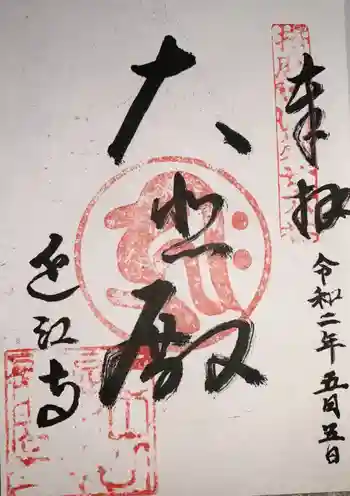 奉拝
令和二年五月五日
大悲殿
近江寺